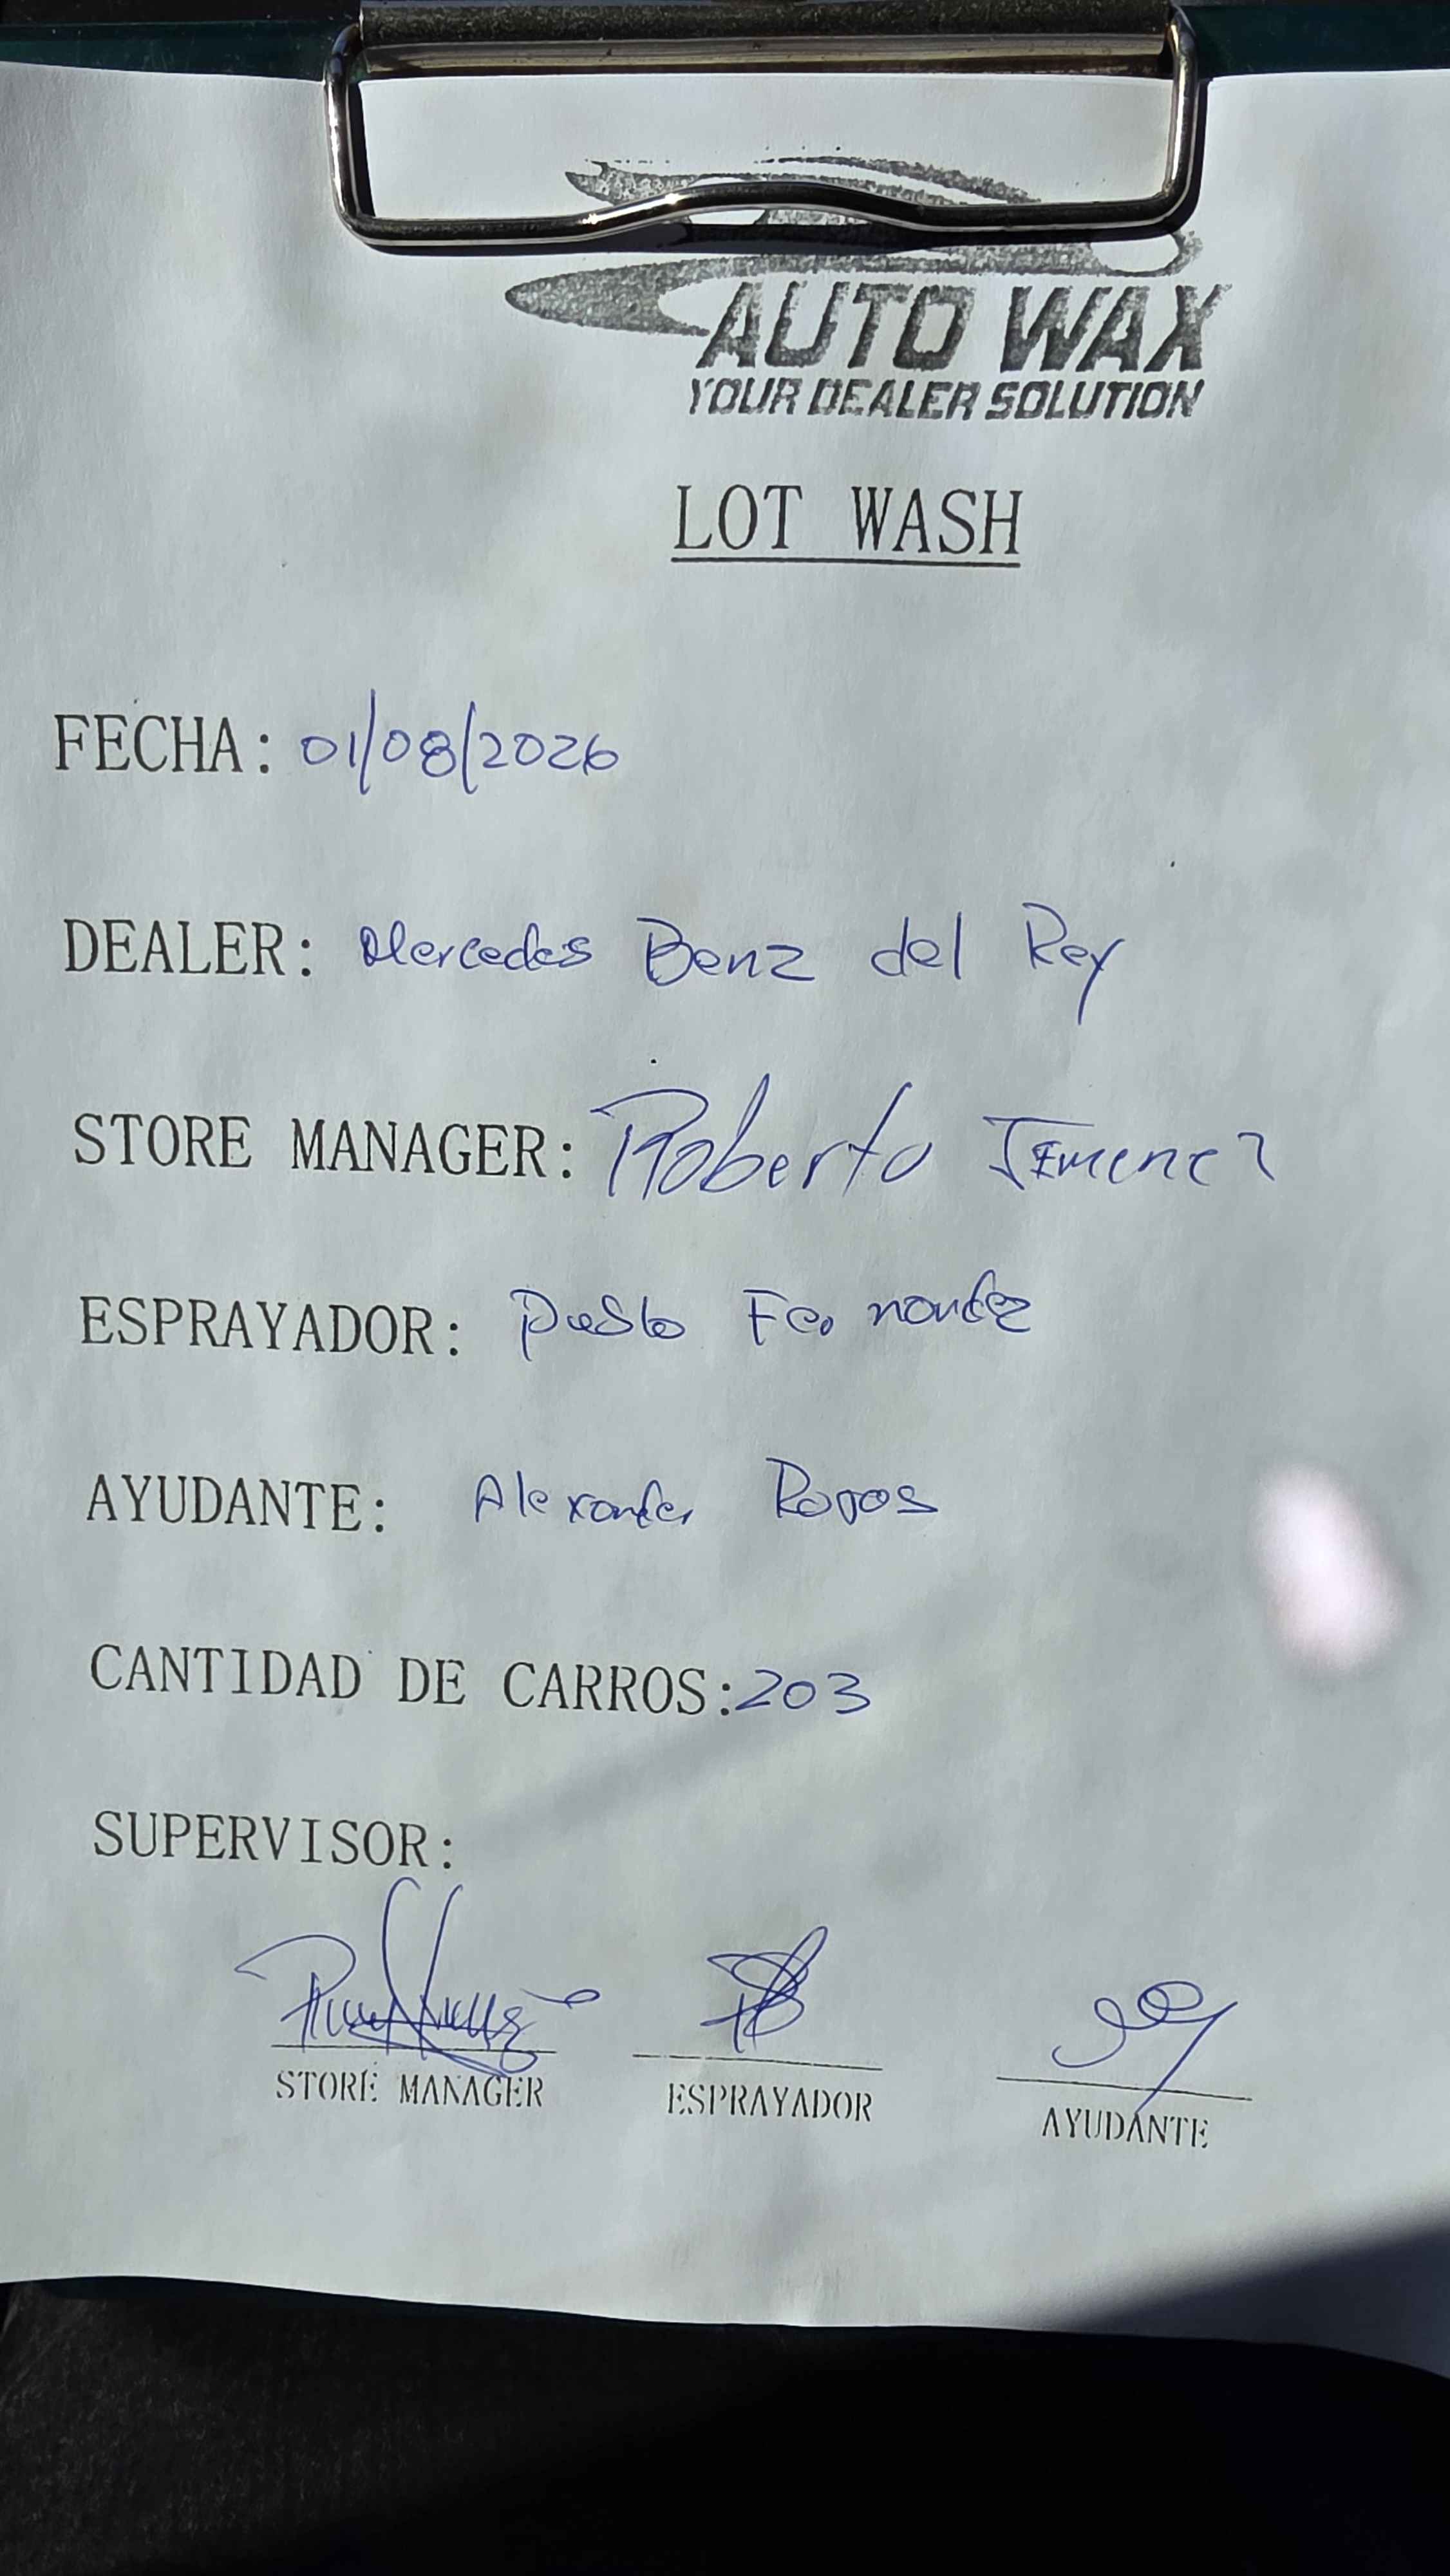 AUTO WAX
YOUR DEALER SOLUTION
LOT WASH
FECHA: 01/08/2026
DEALER: Mercedes Benz del Rey
STORE MANAGER: Roberto Jimenez
ESPRAYADOR: Pablo Fernandez
AYUDANTE: Alexander
CANTIDAD DE CARROS: 203
SUPERVISOR:
STORE MANAGER ESPRAYADOR AYUDANTE